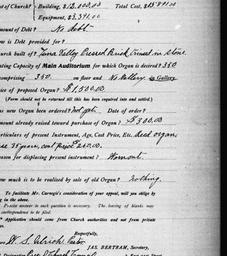 of Church? Building, $12,000.00 Total Cost, $15391.00
Equipment, $3,391.00
mount of Debt? No debt
is Debt provided for?
urch built of? Pressed Brick Trimed in Stone
ating Capacity of Main Auditorium for which Organ is desired? 350
omprising 350 on floor and No Gallery in Gallery
ice of proposed Organ? $1,500.00
(Form should not to returned till this has been required into and settled.)
s new Organ been ordered? Not yet Date of order?
mount already raised toward purchase of Organ? $300.00
articulars of present Instrument, Age, Cost Price, Etc. Reed organ
35 years, cost
eason for displacing present instrument? Wornout.
ow much is to be realized by sale of old Organ? nothing.
To facilitate Mr. Carnegie's consideration of your appeal, will you oblige by
ng in the above.
Precise answer to each question is necessary. The leaving of blanks may
correspondence to be filed.
Application should come from Church authorities and not from private
Respectfully,
W. S.
JAS. BERTRAM, Secretary,